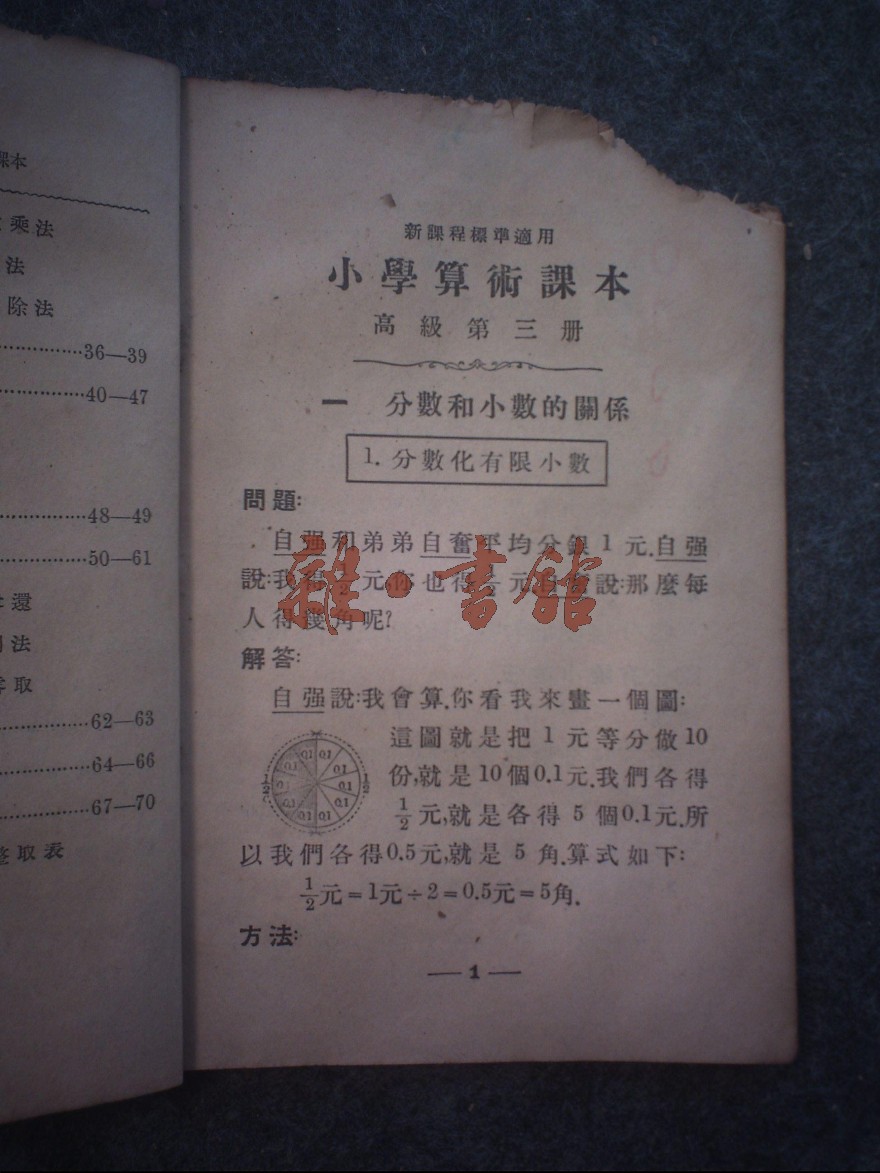 課本
乘法
法
除法
36—39
40—47
48—49
50—61
還
法
取
62—63
64—66
67—70
取表
新課程標準適用
小學算術課本
高級第三册
一 分數和小數的關係
1. 分數化有限小數
問題:
自强和弟弟自奮平均分銀1元.自强
說:我得½元,你也得½元.自奮說:那麼每
人得幾角呢?
解答:
自强說:我會算.你看我來畫一個圖:
這圖就是把1元等分做10
份,就是10個0.1元.我們各得
½元,就是各得5個0.1元.所
以我們各得0.5元,就是5角.算式如下:
½元=1元÷2=0.5元=5角.
½ 0.1 0.1 0.1 0.1 0.1 0.1 0.1 0.1 0.1 0.1 ½
方法:
—1—
雜·書館